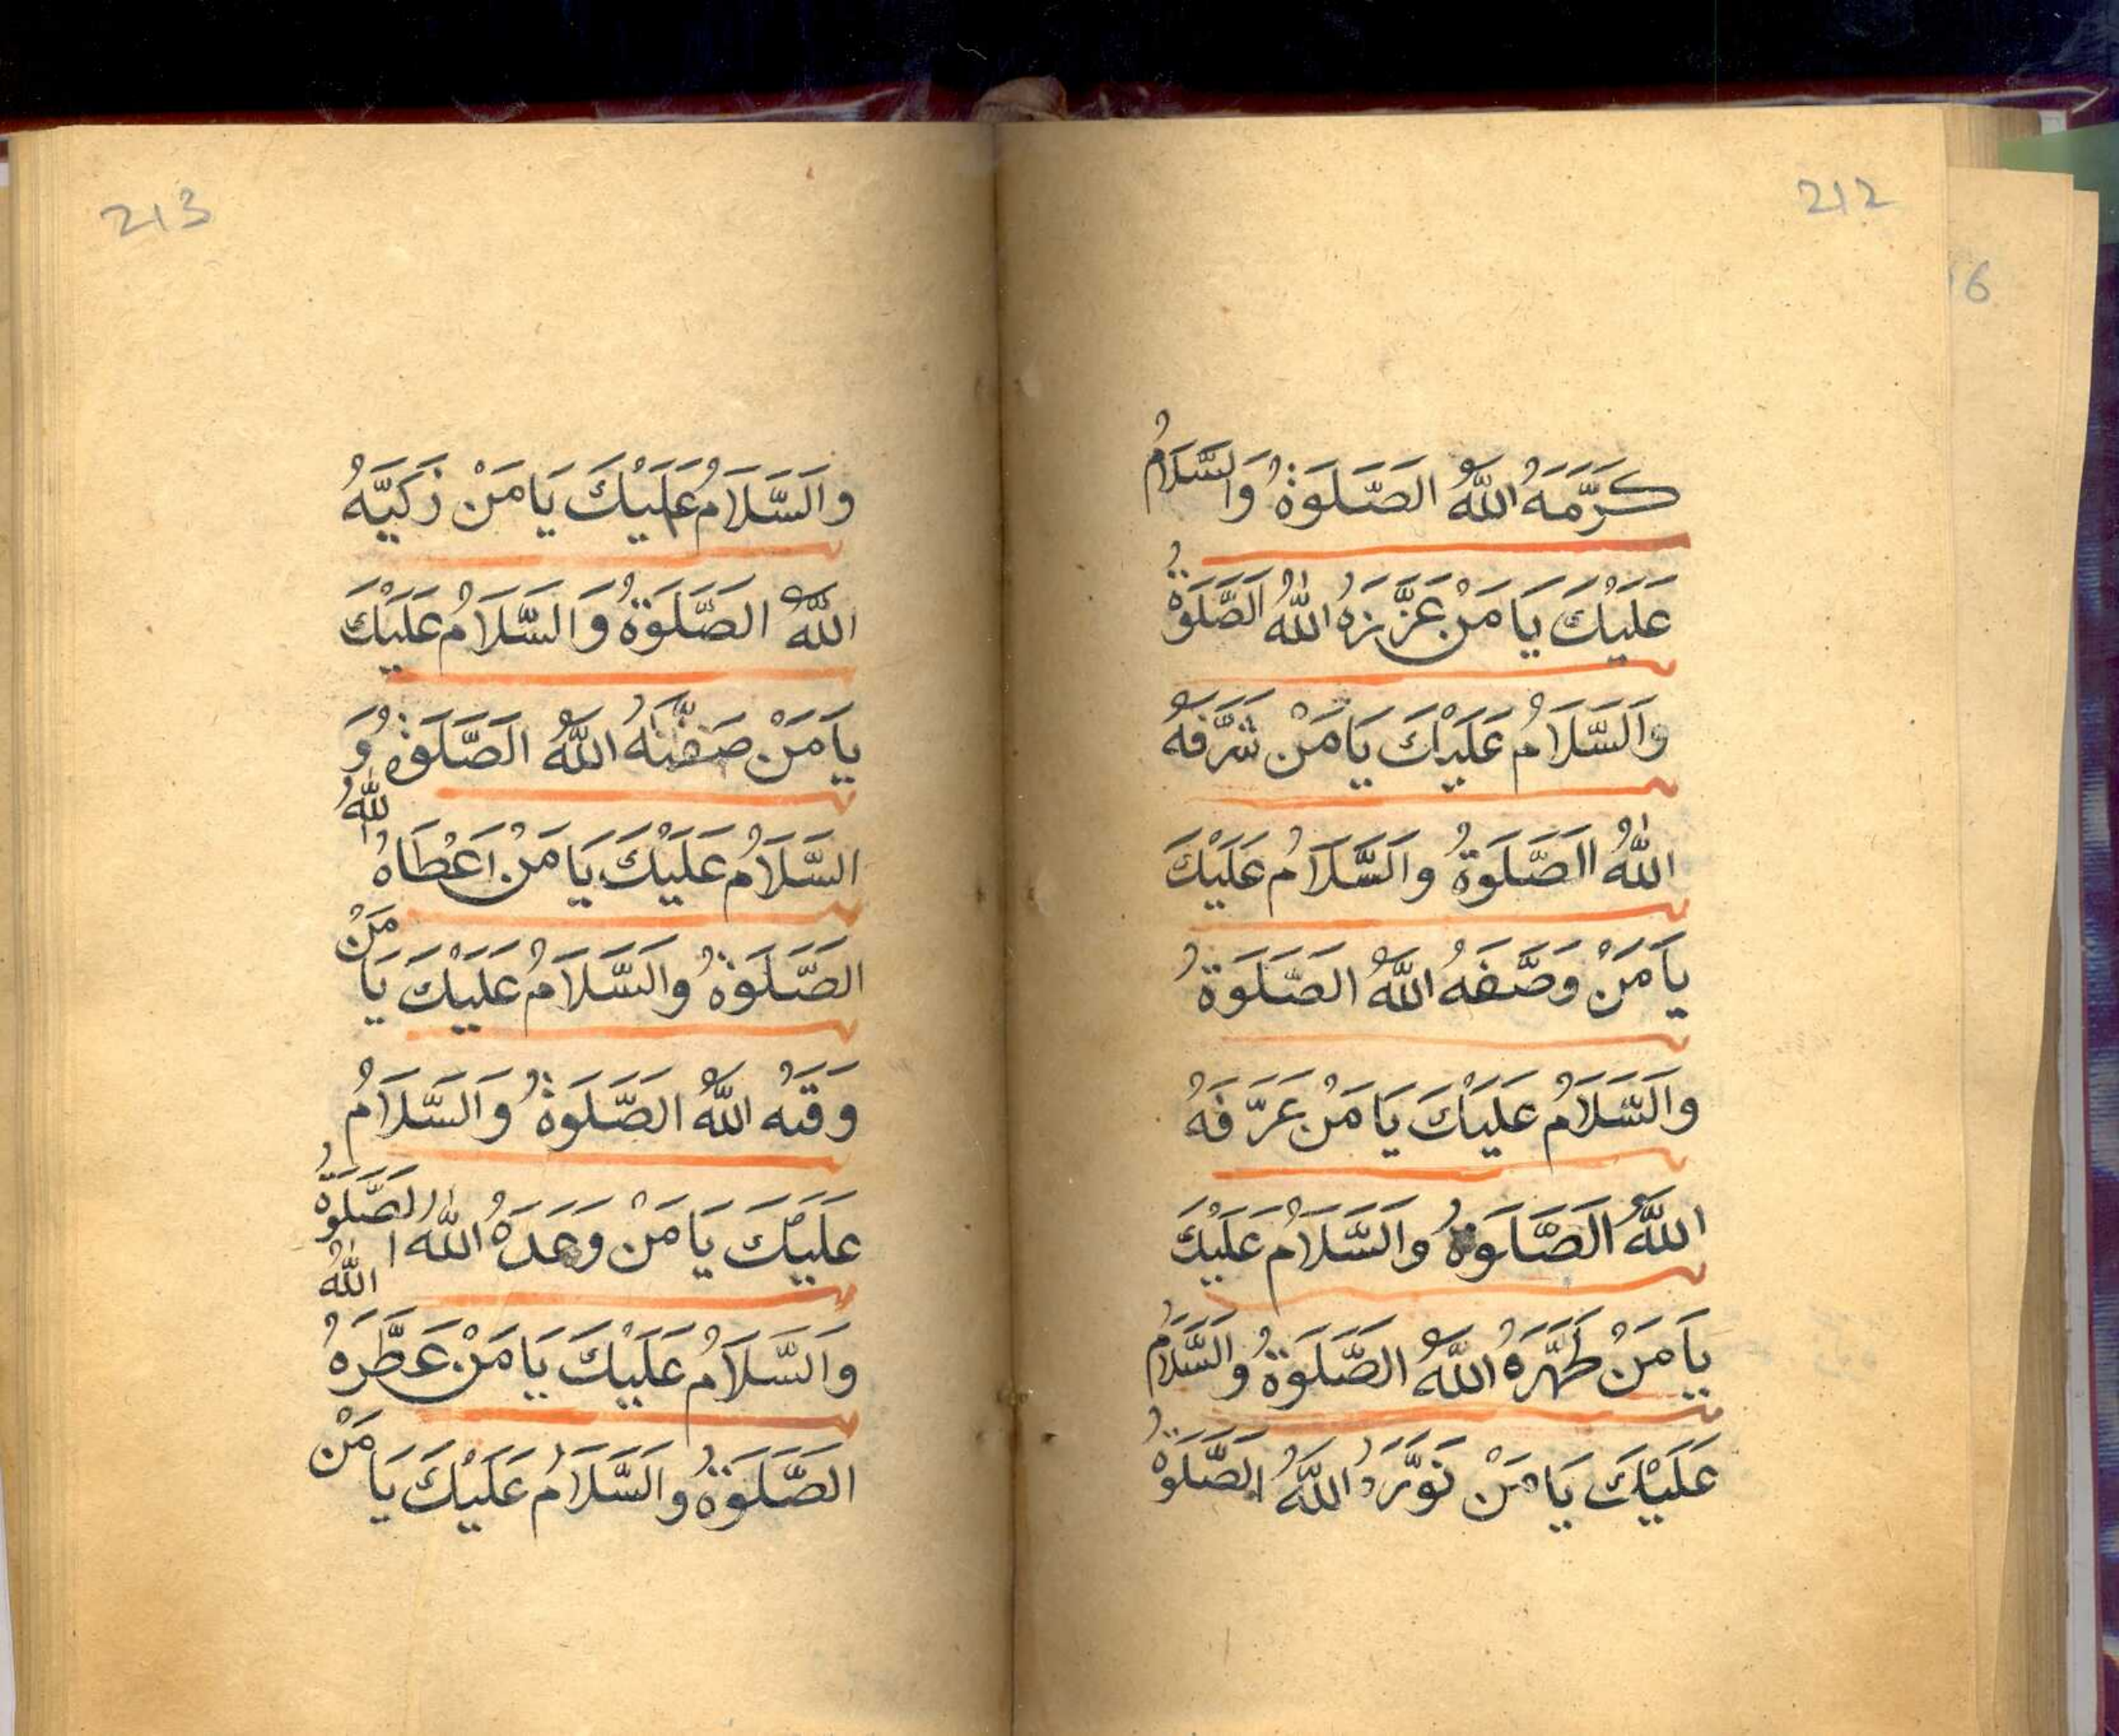 212
كَرَّمَهُ اللهُ الصَّلَوٰةُ وَالسَّلَامُ
عَلَيْكَ يَا مَنْ عَزَّزَهُ اللهُ الصَّلَوٰةُ
وَالسَّلَامُ عَلَيْكَ يَا مَنْ شَرَّفَهُ
اللهُ الصَّلَوةُ وَالسَّلَامُ عَلَيْكَ
يَا مَنْ وَصَّفَهُ اللهُ الصَّلَوةُ
وَالسَّلَامُ عَلَيْكَ يَا مَنْ عَرَّفَهُ
اللهُ الصَّلَوةُ وَالسَّلَامُ عَلَيْكَ
يَا مَنْ طَهَّرَهُ اللهُ الصَّلَوةُ وَالسَّلَامُ
عَلَيْكَ يَا مَنْ نَوَّرَهُ اللهُ الصَّلَوةُ
16
213
وَالسَّلَامُ عَلَيْكَ يَا مَنْ زَكَيَّهُ
اللهُ الصَّلَوةُ وَالسَّلَامُ عَلَيْكَ
يَا مَنْ اللهُ الصَّلَوةُ وَ
السَّلَامُ عَلَيْكَ يَا مَنْ اَعْطَاهُ اللهُ
الصَّلَوةُ وَالسَّلَامُ عَلَيْكَ يَا مَنْ
وَقَهُ اللهُ الصَّلَوةُ وَالسَّلَامُ
عَلَيْكَ يَا مَنْ وَعَدَهُ اللهُ الصَّلَوةُ
وَالسَّلَامُ عَلَيْكَ يَا مَنْ عَطَّرَهُ اللهُ
الصَّلَوةُ وَالسَّلَامُ عَلَيْكَ يَا مَنْ